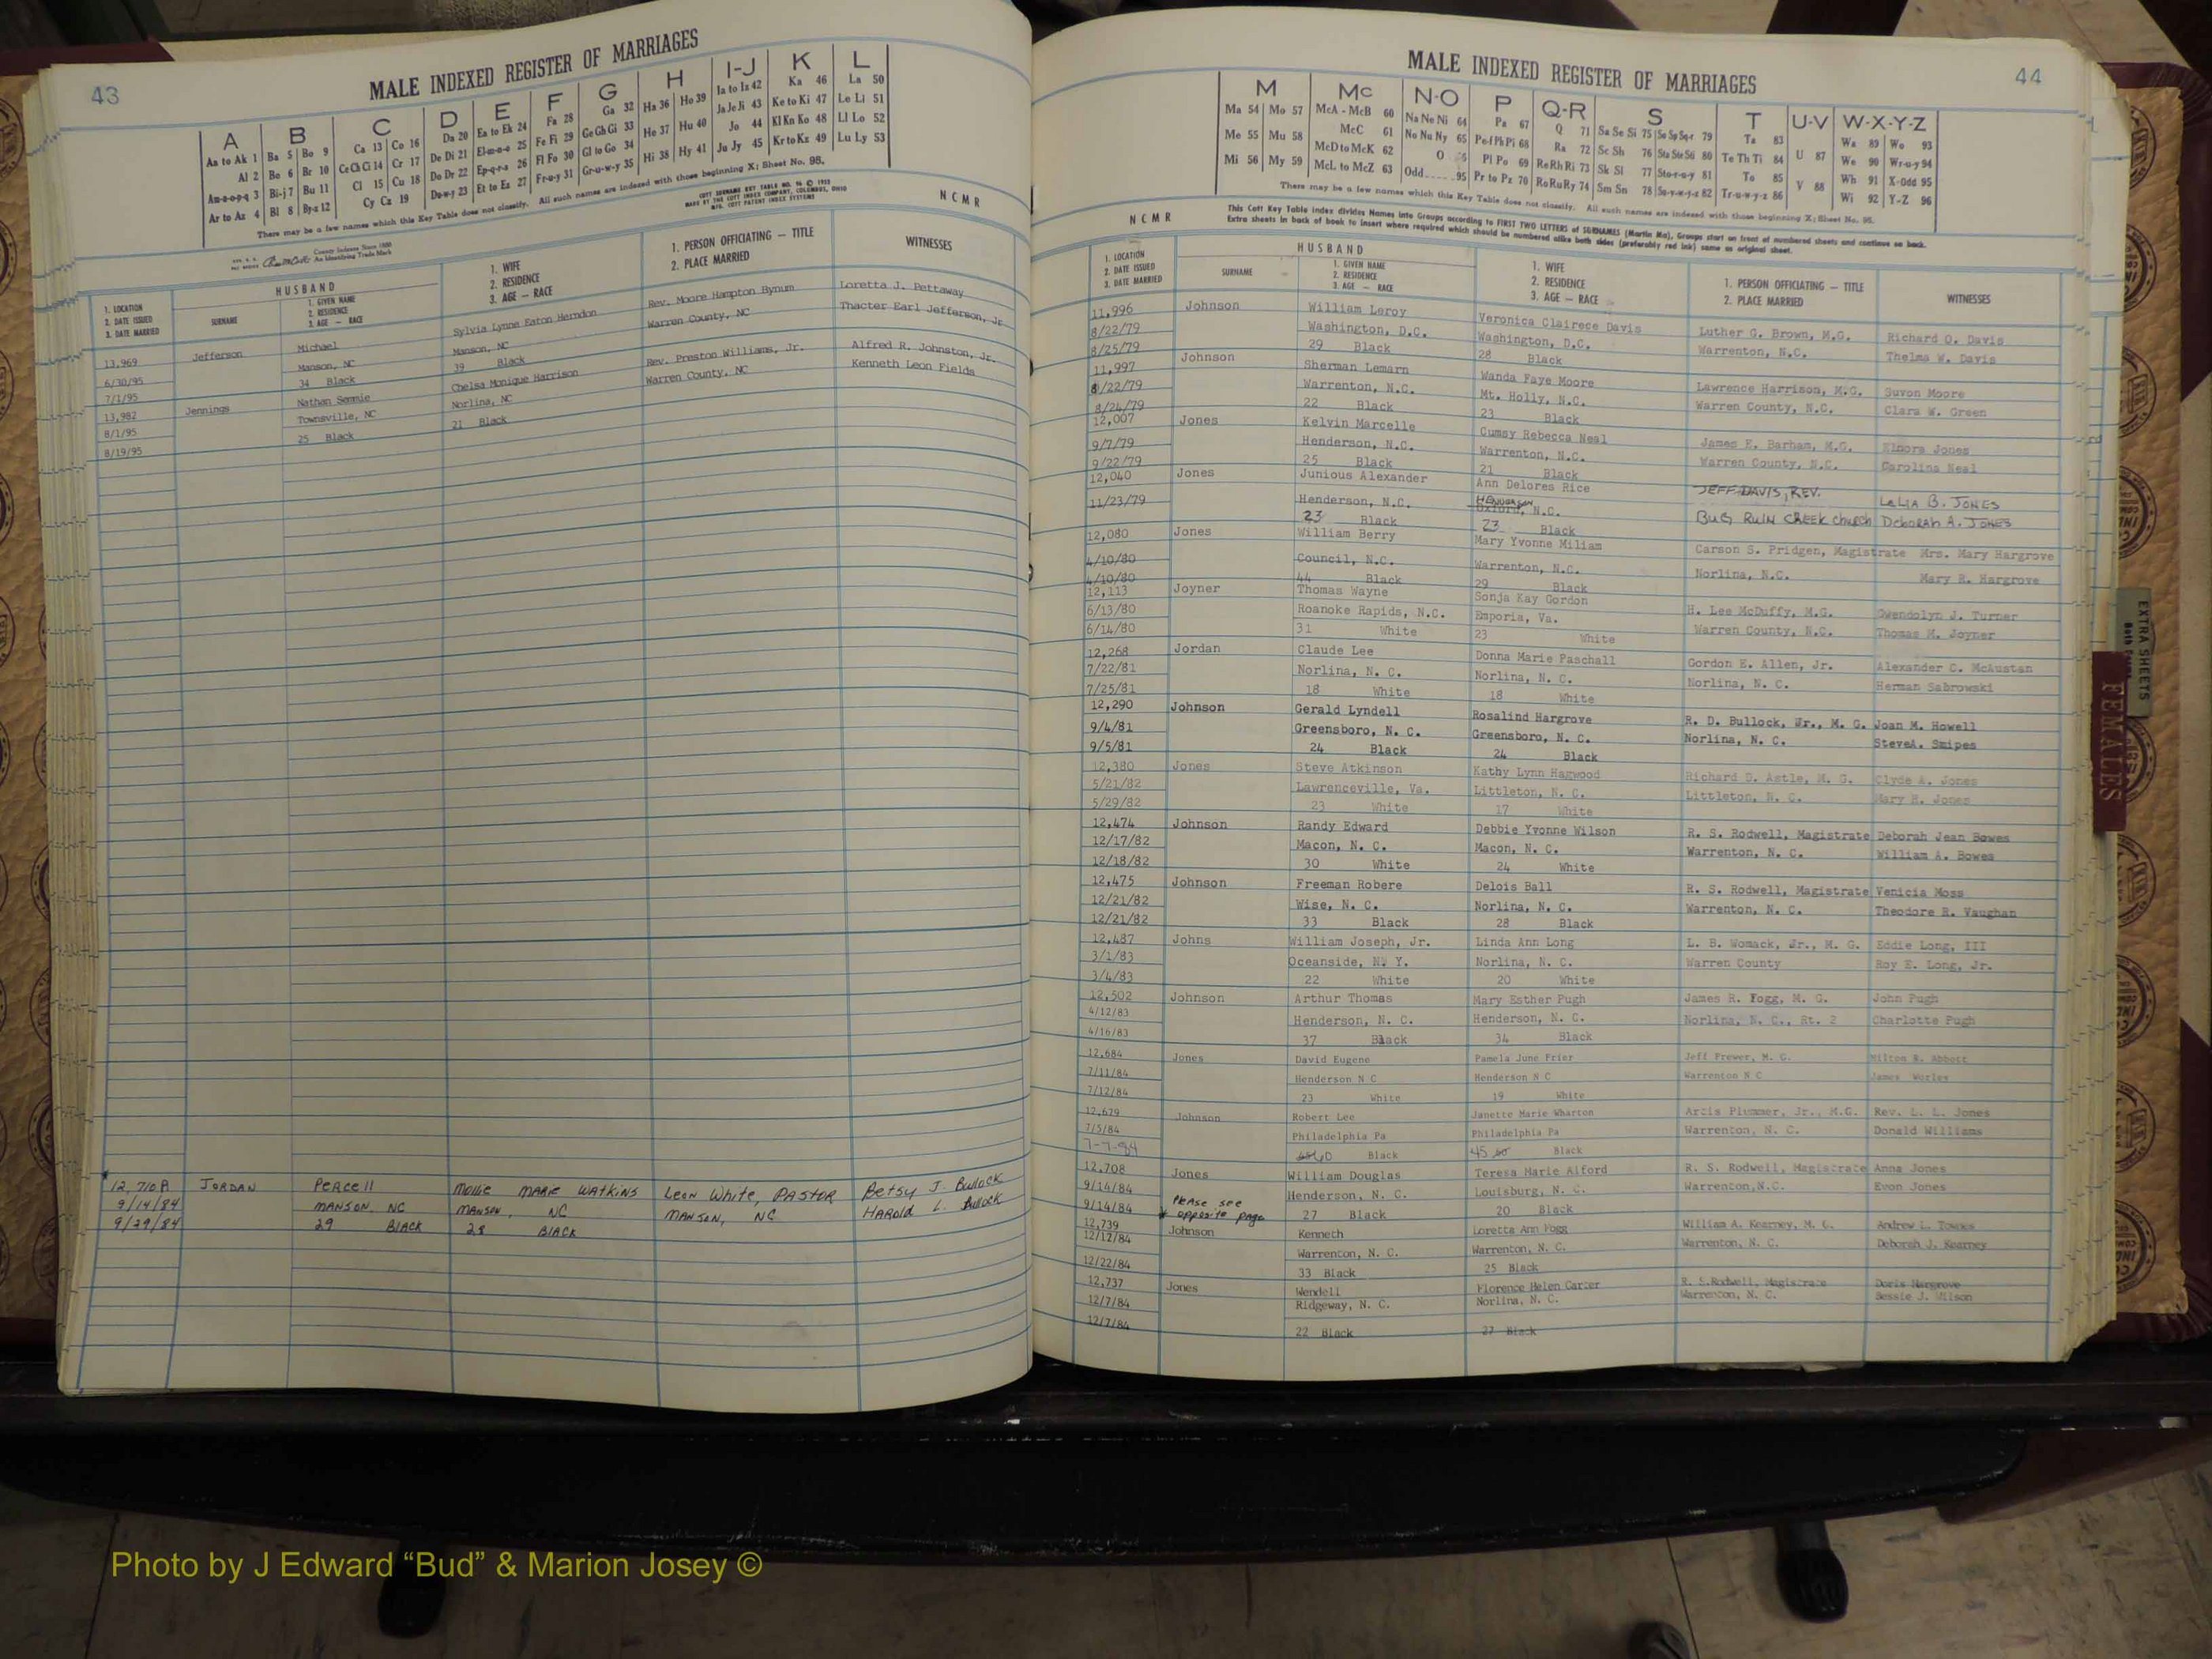 43
MALE INDEXED REGISTER OF MARRIAGES
A B C D E F G H I-J K L
Aa to Ak 1 Ba 5 Bo 9 Ca 13 Co 16 Da 20 Ea to Ek 24 Fa 28 Ga 32 Ha 36 Ho 39 Ia to Iz 42 Ka 46 La 50
Al 2 Be 6 Br 10 Ce Ch Ci 14 Cr 17 De Di 21 El-m-n-o 25 Fe Fi 29 Ge Gh Gi 33 He 37 Hu 40 Ja Je Ji 43 Ke to Ki 47 Le Li 51
Am-n-o-p-q 3 Bi-j 7 Bu 11 Cl 15 Cu 18 Do Dr 22 Ep-q-r-s 26 Fl Fo 30 Gl to Go 34 Hi 38 Hy 41 Jo 44 Kl Kn Ko 48 Ll Lo 52
Ar to Az 4 Bl 8 By-z 12 Cy Cz 19 Dw-y 23 Et to Ez 27 Fr-u-y 31 Gr-u-w-y 35 Ju Jy 45 Kr to Kz 49 Lu Ly 53
There may be a few names which this Key Table does not classify. All such names are indexed with those beginning X; Sheet No. 95.
County Indexes Since 1888
An Identifying Trade Mark
COTT SURNAME KEY TABLE NO. 96 © 1922
MADE BY THE COTT INDEX COMPANY, COLUMBUS, OHIO
MFG. COTT PATENT INDEX SYSTEMS
NCMR
1. LOCATION
2. DATE ISSUED
3. DATE MARRIED
HUSBAND
SURNAME
1. GIVEN NAME
2. RESIDENCE
3. AGE — RACE
1. WIFE
2. RESIDENCE
3. AGE — RACE
1. PERSON OFFICIATING — TITLE
2. PLACE MARRIED
WITNESSES
13,969 Jefferson Michael Sylvia Lynne Eaton Herndon Rev. Moore Hampton Bynum Loretta J. Pettaway
6/30/95 Manson, NC Manson, NC Warren County, NC Thacter Earl Jefferson, Jr
7/1/95 34 Black 39 Black
13,982 Jennings Nathan Sennie Chelsa Monique Harrison Rev. Preston Williams, Jr. Alfred R. Johnston, Jr.
8/1/95 Townsville, NC Norlina, NC Warren County, NC Kenneth Leon Fields
8/19/95 25 Black 21 Black
12,710A JORDAN PeRcell Mollie MARIE WATKINS Leon White, PASTOR Betsy J. Bullock
9/14/84 MANSON, NC MANSON, NC MANSON, NC HAROLd L. Bullock
9/29/84 29 BLACK 28 BLACK
44
MALE INDEXED REGISTER OF MARRIAGES
M Mc N-O P Q-R S T U-V W-X-Y-Z
Ma 54 Mo 57 McA - McB 60 Na Ne Ni 64 Pa 67 Q 71 Sa Se Si 75 So Sp Sq-r 79 Ta 83 Wa 89 Wo 93
Me 55 Mu 58 McC 61 No Nu Ny 65 Pe Pf Ph Pi 68 Ra 72 Sc Sh 76 Sta Ste Sti 80 Te Th Ti 84 U 87 We 90 Wr-u-y 94
Mi 56 My 59 McD to McK 62 O Pl Po 69 Re Rh Ri 73 Sk Sl 77 Sto-r-u-y 81 To 85 V 88 Wh 91 X-Odd 95
McL to McZ 63 Odd.....95 Pr to Pz 70 Ro Ru Ry 74 Sm Sn 78 Su-v-w-y-z 82 Tr-u-w-y-z 86 Wi 92 Y-Z 96
There may be a few names which this Key Table does not classify. All such names are indexed with those beginning X; Sheet No. 95.
NCMR
This Cott Key Table Index divides Names into Groups according to FIRST TWO LETTERS of SURNAMES (Martin Ma), Groups start on front of numbered sheets and continue on back.
Extra sheets in back of book to insert where required which should be numbered alike both sides (preferably red ink) same as original sheet.
1. LOCATION
2. DATE ISSUED
3. DATE MARRIED
HUSBAND
SURNAME
1. GIVEN NAME
2. RESIDENCE
3. AGE — RACE
1. WIFE
2. RESIDENCE
3. AGE — RACE
1. PERSON OFFICIATING — TITLE
2. PLACE MARRIED
WITNESSES
11,996 Johnson William Leroy Veronica Clairece Davis Luther G. Brown, M.G. Richard O. Davis
8/22/79 Washington, D.C. Washington, D.C. Warrenton, N.C. Thelma W. Davis
8/25/79 29 Black 28 Black
11,997 Johnson Sherman Lemarn Wanda Faye Moore Lawrence Harrison, M.G. Suvon Moore
8/22/79 Warrenton, N.C. Mt. Holly, N.C. Warren County, N.C. Clara W. Green
8/24/79 22 Black 23 Black
12,007 Jones Kelvin Marcelle Cumsy Rebecca Neal James E. Barham, M.G. Elnora Jones
9/7/79 Henderson, N.C. Warrenton, N.C. Warren County, N.C. Carolina Neal
9/22/79 25 Black 21 Black
12,040 Jones Junious Alexander Ann Delores Rice JEFF DAVIS, REV. LeLIA B. JONES
11/23/79 Henderson, N.C. HENDERSON Oxford, N.C. BUG RUIN CREEK Church DeboRAh A. JONES
23 Black 23 Black
12,080 Jones William Berry Mary Yvonne Miliam Carson S. Pridgen, Magistrate Mrs. Mary Hargrove
4/10/80 Council, N.C. Warrenton, N.C. Norlina, N.C. Mary R. Hargrove
4/10/80 44 Black 29 Black
12,113 Joyner Thomas Wayne Sonja Kay Gordon H. Lee McDuffy, M.G. Gwendolyn J. Turner
6/13/80 Roanoke Rapids, N.C. Emporia, Va. Warren County, N.C. Thomas M. Joyner
6/14/80 31 White 23 White
12,268 Jordan Claude Lee Donna Marie Paschall Gordon E. Allen, Jr. Alexander C. McAustan
7/22/81 Norlina, N. C. Norlina, N. C. Norlina, N. C. Herman Sabrowski
7/25/81 18 White 18 White
12,290 Johnson Gerald Lyndell Rosalind Hargrove R. D. Bullock, Jr., M. G. Joan M. Howell
9/4/81 Greensboro, N. C. Greensboro, N. C. Norlina, N. C. SteveA. Snipes
9/5/81 24 Black 24 Black
12,380 Jones Steve Atkinson Kathy Lynn Hagwood Richard D. Astle, M. G. Clyde A. Jones
5/21/82 Lawrenceville, Va. Littleton, N. C. Littleton, N. C. Mary H. Jones
5/29/82 23 White 17 White
12,474 Johnson Randy Edward Debbie Yvonne Wilson R. S. Rodwell, Magistrate Deborah Jean Bowes
12/17/82 Macon, N. C. Macon, N. C. Warrenton, N. C. William A. Bowes
12/18/82 30 White 24 White
12,475 Johnson Freeman Robere Delois Ball R. S. Rodwell, Magistrate Venicia Moss
12/21/82 Wise, N. C. Norlina, N. C. Warrenton, N. C. Theodore R. Vaughan
12/21/82 33 Black 28 Black
12,487 Johns William Joseph, Jr. Linda Ann Long L. B. Womack, Jr., M. G. Eddie Long, III
3/1/83 Oceanside, N. Y. Norlina, N. C. Warren County Roy E. Long, Jr.
3/4/83 22 White 20 White
12,502 Johnson Arthur Thomas Mary Esther Pugh James R. Fogg, M. G. John Pugh
4/12/83 Henderson, N. C. Henderson, N. C. Norlina, N. C., Rt. 2 Charlotte Pugh
4/16/83 37 Black 34 Black
12,684 Jones David Eugene Pamela June Frier Jeff Frewer, M. G. Milton R. Abbott
7/11/84 Henderson N C Henderson N C Warrenton N C James
7/12/84 23 White 19 White
12,679 Johnson Robert Lee Janette Marie Wharton Arcis Plummer, Jr., M.G. Rev. L. L. Jones
7/5/84 Philadelphia Pa Philadelphia Pa Warrenton, N. C. Donald Williams
7-7-84 60 Black 45 Black
12,708 Jones William Douglas Teresa Marie Alford R. S. Rodwell, Magistrate Anna Jones
9/14/84 Henderson, N. C. Louisburg, N. C. Warrenton,N.C. Evon Jones
9/14/84 Please see opposite page 27 Black 20 Black
12,739 Johnson Kenneth Loretta Ann Fogg William A. Kearney, M. G. Andrew L. Townes
12/12/84 Warrenton, N. C. Warrenton, N. C. Warrenton, N. C. Deborah J. Kearney
12/22/84 33 Black 25 Black
12,737 Jones Wendell Florence Helen Carter R. S.Rodwell, Magistrate Doris Hargrove
12/7/84 Ridgeway, N. C. Norlina, N. C. Warrenton, N. C. Bessie J. Wilson
12/7/84 22 Black 27 Black
EXTRA SHEETS
FEMALES
Photo by J Edward “Bud” & Marion Josey ©